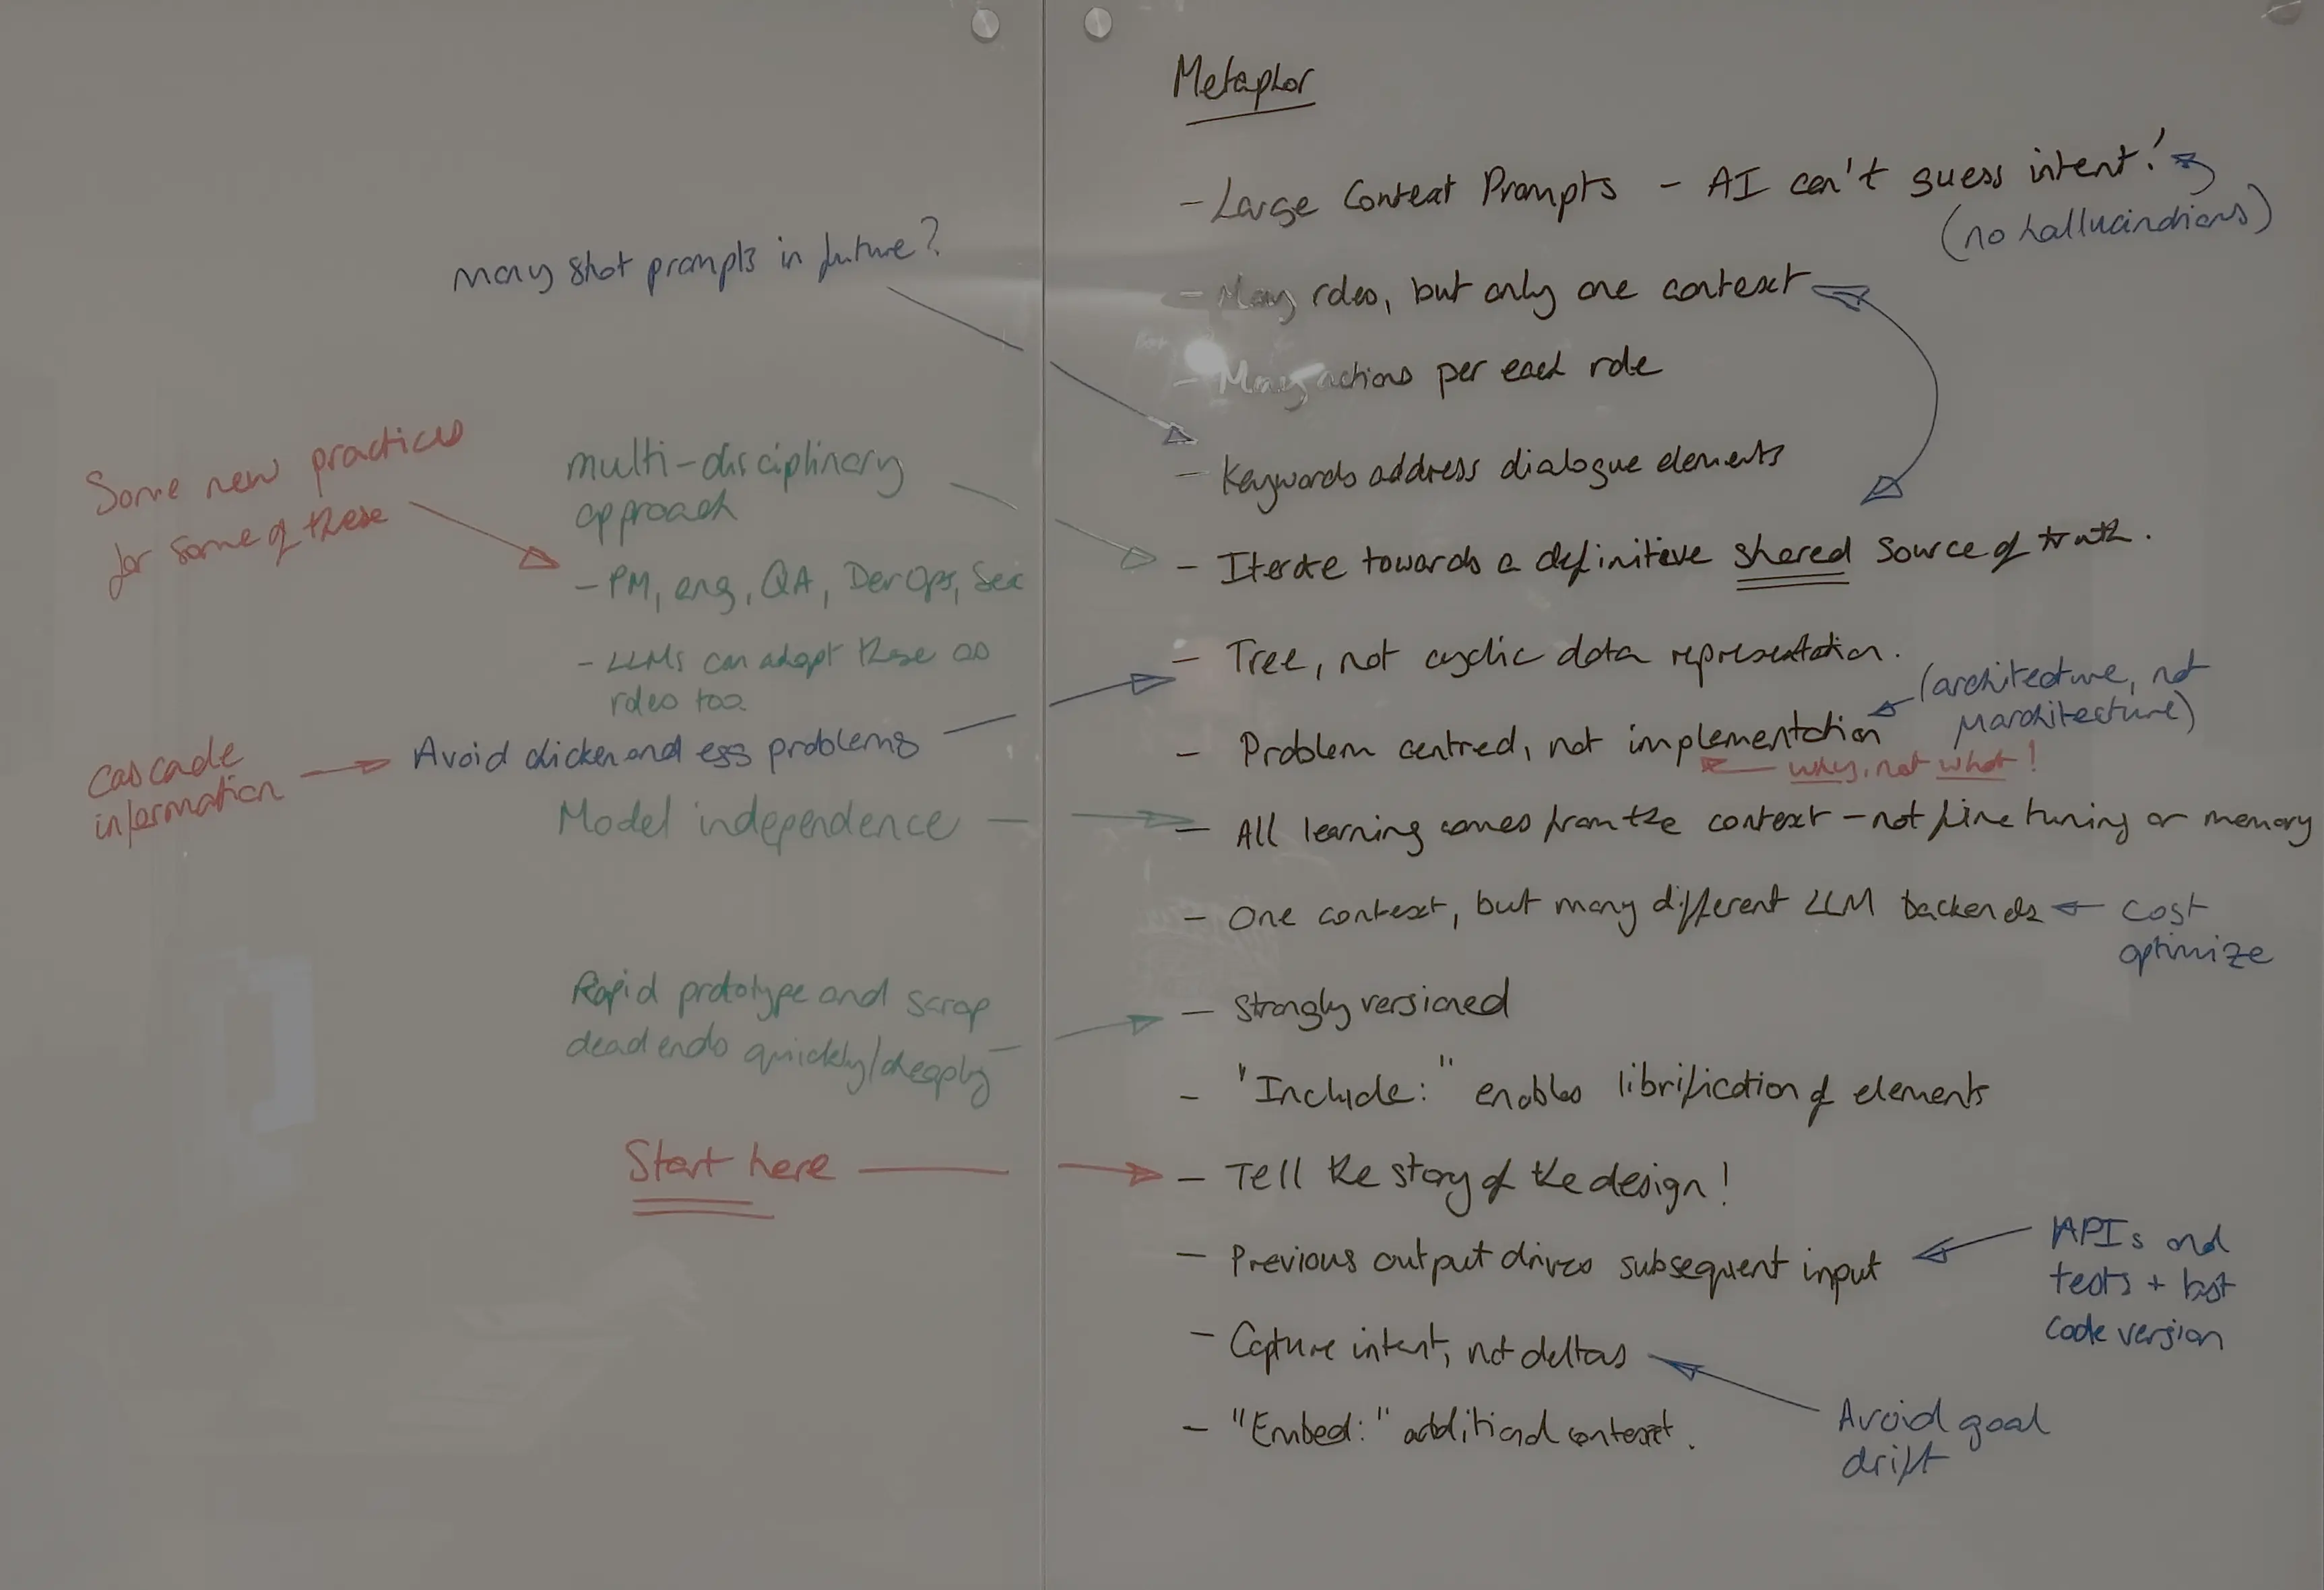 Metaphor
- Large Context Prompts - AI can't guess intent!
(no hallucinations)
many shot prompts in future?
- Many roles, but only one context
- Many actions per each role
- Keywords address dialogue elements
Some new practices
for some of these
multi-disciplinary
approach
- PM, eng, QA, DevOps, Sec
- LLMs can adopt these as
roles too.
- Iterate towards a definitive shared source of truth.
- Tree, not cyclic data representation.
(architecture, not
marchitecture)
Cascade
information
Avoid chicken and egg problems
- Problem centred, not implementation
why, not what!
Model independence
- All learning comes from the context - not fine tuning or memory
- One context, but many different LLM backends
cost
optimize
Rapid prototype and scrap
dead ends quickly/cheaply
- Strongly versioned
- "Include:" enables librification of elements
Start here
- Tell the story of the design!
- Previous output drives subsequent input
APIs and
tests + last
code version
- Capture intent, not deltas
Avoid goal
drift
- "Embed:" additional context.